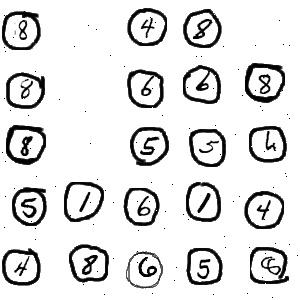 8 4 8
8 6 6 8
8 5 5
5 1 6 1 4
4 8 6 5